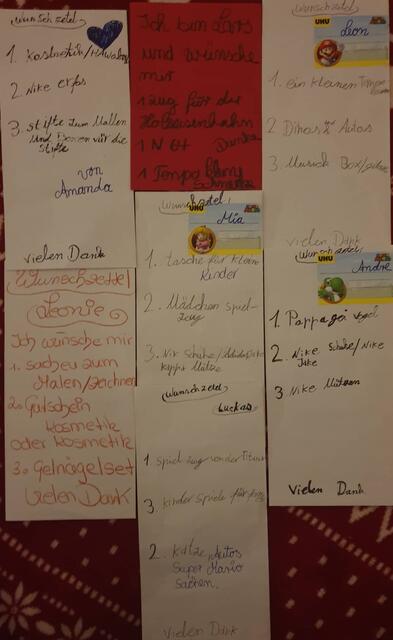 Wunschzettel
1. Kosmetik/
2. Nike
3. Stifte zum Mallen
und Dosen für die
Stifte
von
Amanda
vielen Dank
Ich bin Lars
und wünsche
mir
1 zug für der
Holzeisenbahn
1 N Danke
1 Tempo
Wunschzettel
UHU
Leon
1. ein kleinen
2 Dinos Autos
3 Musick Box/
vielen Dank
Wunschzettel
UHU
Mia
1. Tasche für kleine
Kinder
2. Mädchen spiel-
zeug
3. Schuhe/
Mütze
Wunschzettel
UHU
Andre
1. Pappagei Vogel
2. Nike Schuhe/Nike
Jake
3 Nike Mützen
Vielen Dank
Wunschzettel
Leonie
Ich wünsche mir
1. sachen zum
Malen/zeichnen
2. Gutschein
kosmetik
oder kosmetik
3. Gelnägelset
Vielen Dank
Wunschzettel
Luckas
1 spiel zug von der
3. kinder spiele für
2. Katze, Autos
Super Mario
Sachen.
Vielen Dank